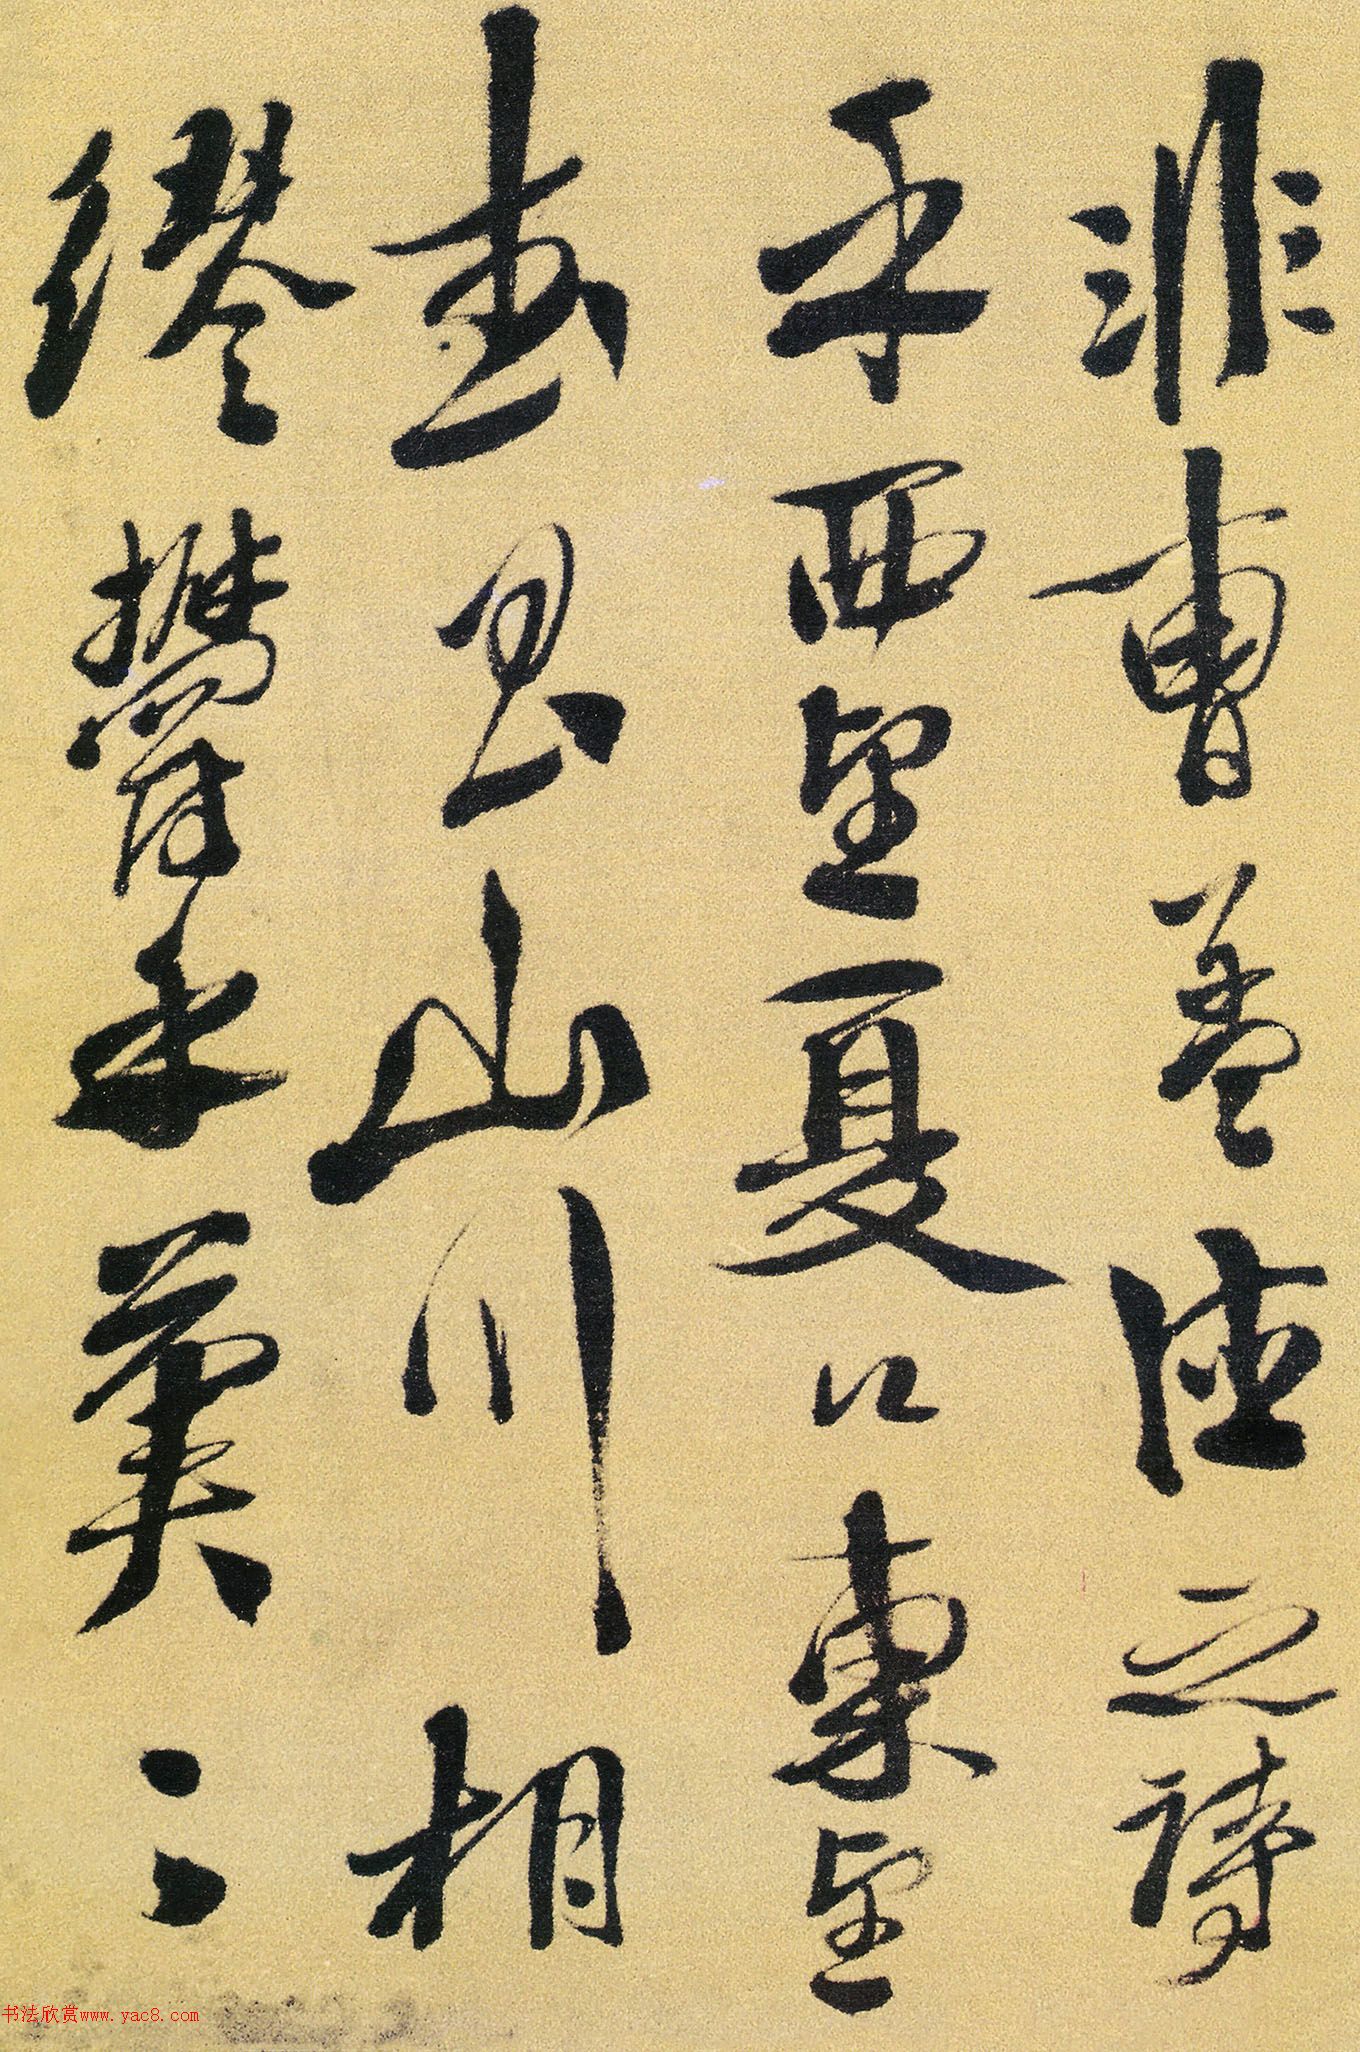 非曹孟德之詩
乎西望夏口東望
武昌山川相
繆鬱乎蒼〻
书法欣赏www.yac8.com